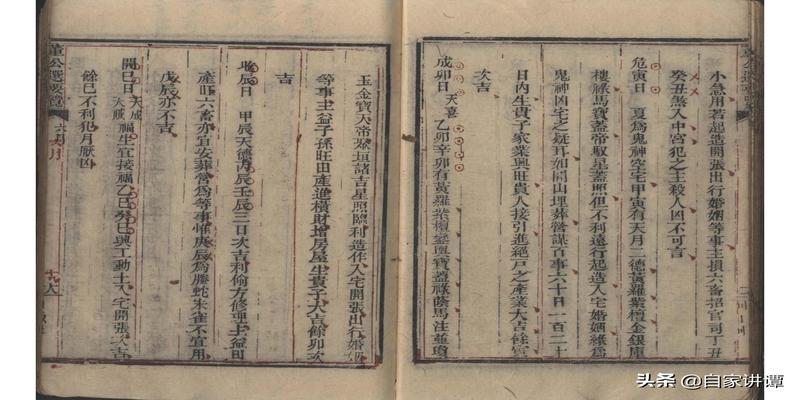 小急用若起造開張出行婚姻等事主損六畜招官司丁丑
癸丑煞入中宮犯之主殺人凶不可言
危寅日 夏為鬼神空宅甲寅有天月二德黃羅紫檀金銀庫
樓祿馬寶蓋帝馭星蓋照但不利遠行起造入宅婚姻緣為
鬼神凶宅之疑耳如開山埋葬營謀百事六十日一百二十
日內生貴子家業興旺貴人接引進絕戶之產業大吉餘寅
次吉
成卯日 天喜 乙卯辛卯有黃羅紫檀鑾輿寶蓋祿蔭馬注並
玉金寶大帝聚垣諸吉星照臨利造作入宅開張出行婚姻
等事主益子孫旺田產進橫財增房屋生貴子大吉餘卯次
吉
收辰日 甲辰天德丙辰壬辰三日次吉利偷方修理主益田
產旺六畜亦宜安葬營為等事惟庚辰為騰蛇朱雀不宜用
戊辰亦不吉
開巳日 天成 天賊 福生宜接福乙巳癸巳興工動土入宅開張次吉
餘巳不利犯月厭凶
董公選要覽
六月
頭条 @自家讲谭